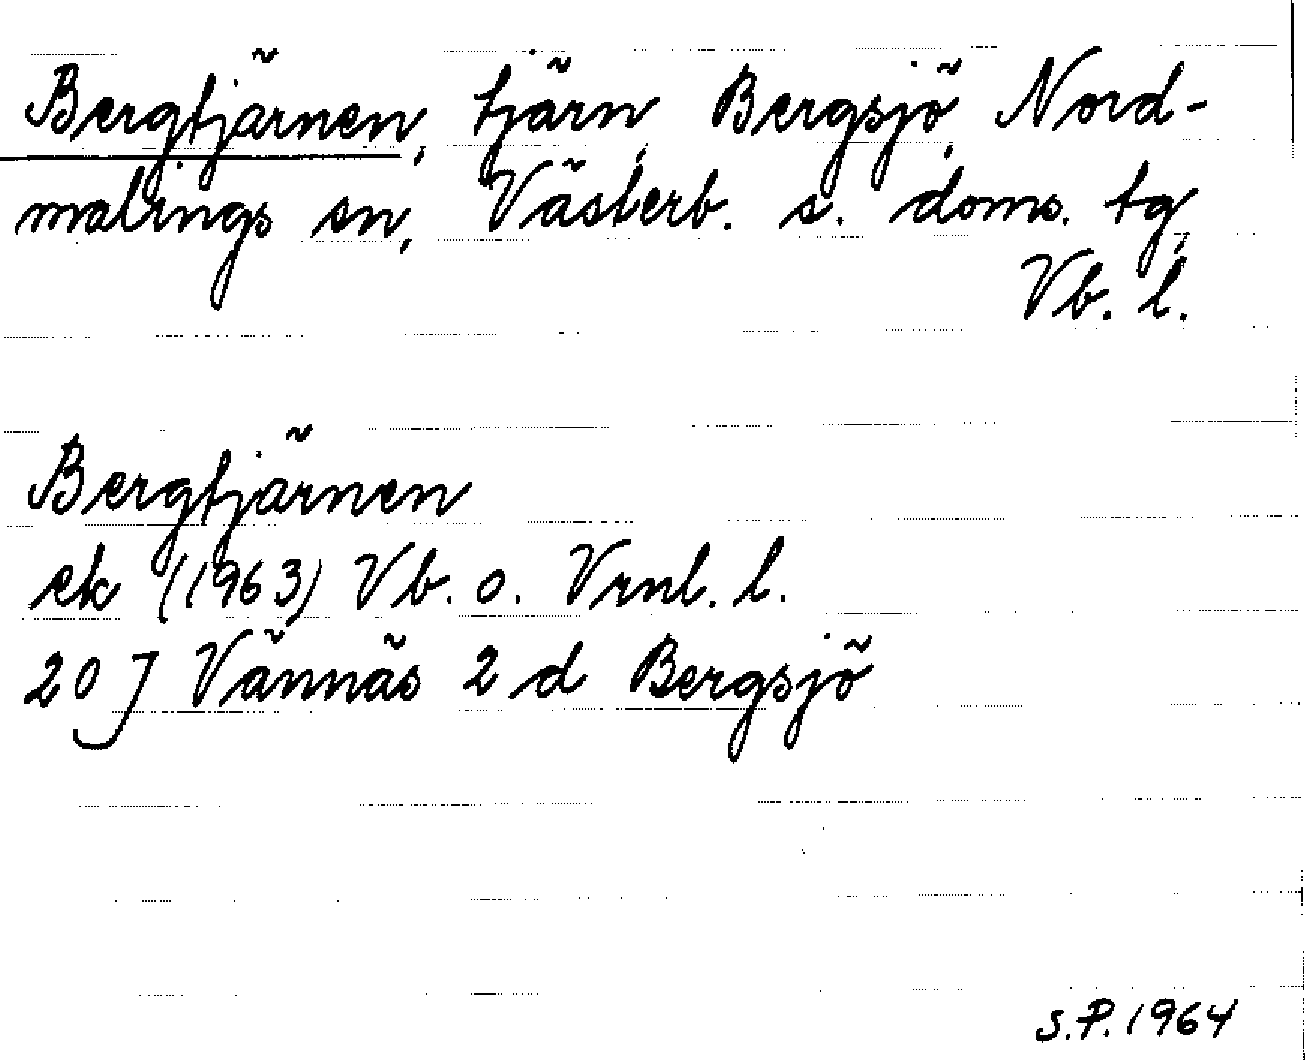 Bergtjärnen, tjärn, Bergsjö, Nord-
malings sn, Västerb. s. doms. tg,
Vb. l.
Bergtjärnen
ek (1963) Vb. o. Vrnl. l.
20 J Vännäs 2 d Bergsjö
S.P. 1964